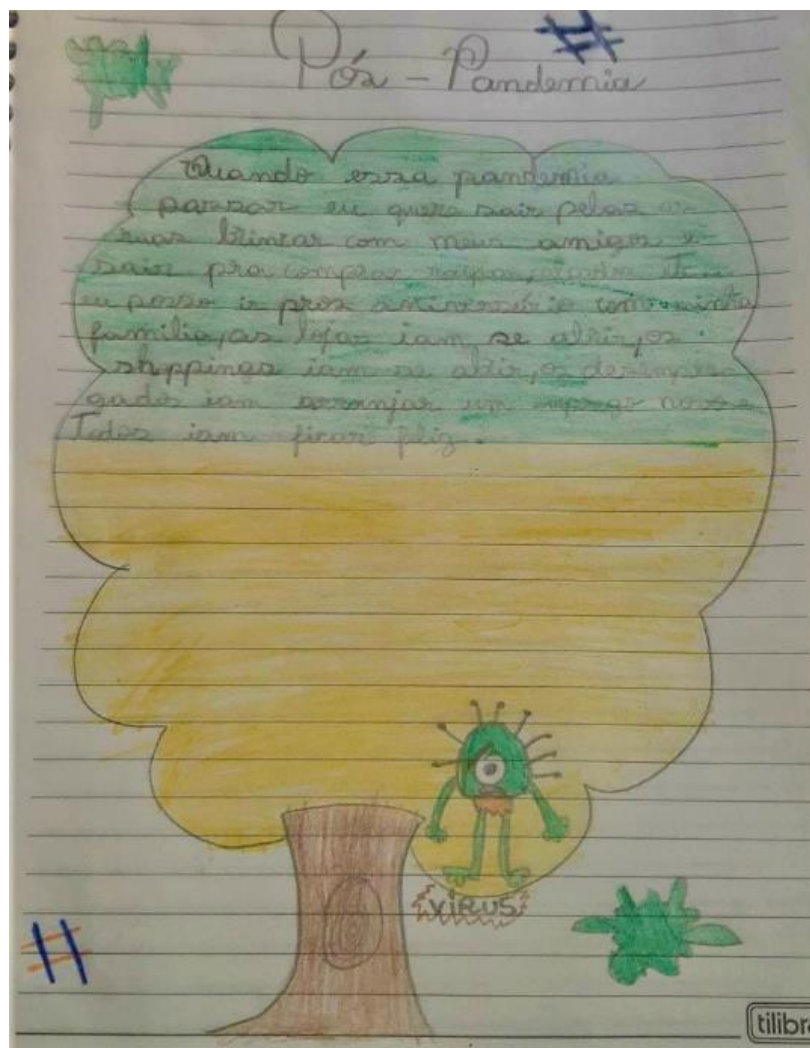 #
Pós - Pandemia
Quando essa pandemia
passar eu quero sair pelas as
ruas brincar com meus amigos e
sair pra comprar roupas, calçados
eu posso ir pros aniversário com minha
família, as lojas iam se abrir, os
shoppings iam se abrir, os desempre
gados iam arranjar um emprego novo e
Todos iam ficar feliz.
VÍRUS
#
tilibra